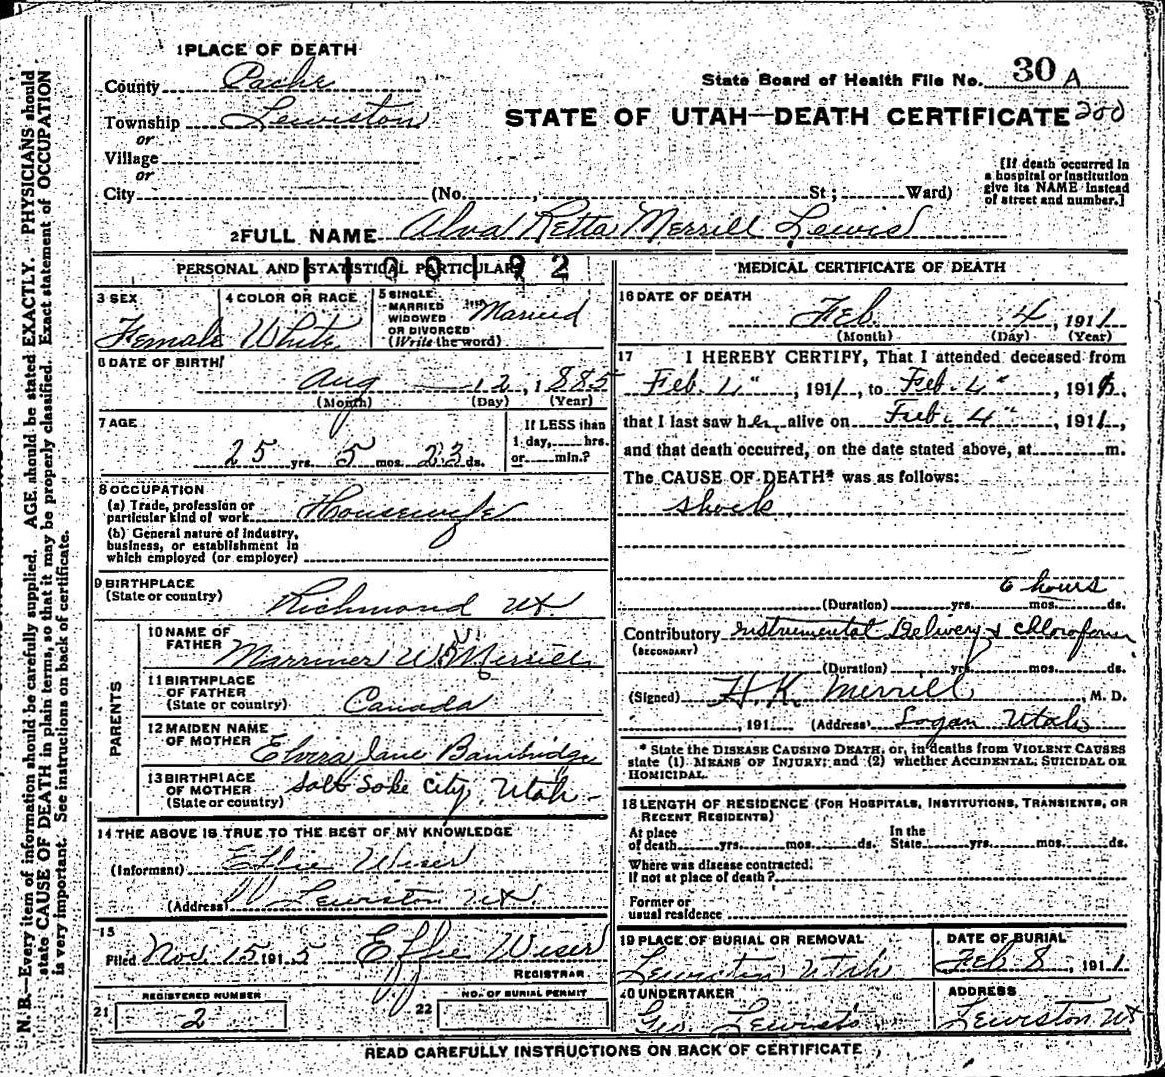 1 PLACE OF DEATH
County Cache
Township Lewiston
or
Village
or
City (No. , St; Ward)
State Board of Health File No. 30 A
STATE OF UTAH—DEATH CERTIFICATE 200
[If death occurred in
a hospital or institution
give its NAME instead
of street and number.]
2 FULL NAME Alva Retta Merrill Lewis
PERSONAL AND STATISTICAL PARTICULARS
1100192
3 SEX
Female
4 COLOR OR RACE
White
5 SINGLE
MARRIED
WIDOWED
OR DIVORCED
(Write the word)
Married
6 DATE OF BIRTH
Aug 12, 1885
(Month) (Day) (Year)
7 AGE
25 yrs. 5 mos. 23 ds.
If LESS than
1 day, hrs.
or min.?
8 OCCUPATION
(a) Trade, profession or
particular kind of work Housewife
(b) General nature of Industry,
business, or establishment in
which employed (or employer)
9 BIRTHPLACE
(State or country) Richmond Ut
PARENTS
10 NAME OF
FATHER Marriner W. Merrill
11 BIRTHPLACE
OF FATHER
(State or country) Canada
12 MAIDEN NAME
OF MOTHER Elvera Jane Bainbridge
13 BIRTHPLACE
OF MOTHER
(State or country) Salt Lake City, Utah
14 THE ABOVE IS TRUE TO THE BEST OF MY KNOWLEDGE
(Informant) Effie Wiser
(Address) Lewiston Ut.
15
Filed Nov. 15 1915 Effie Wiser
REGISTRAR
21 REGISTERED NUMBER
2
22 NO. OF BURIAL PERMIT
MEDICAL CERTIFICATE OF DEATH
16 DATE OF DEATH
Feb. 4, 1911
(Month) (Day) (Year)
17 I HEREBY CERTIFY, That I attended deceased from
Feb. 4", 1911, to Feb. 4", 1911,
that I last saw her alive on Feb. 4", 1911,
and that death occurred, on the date stated above, at m.
The CAUSE OF DEATH* was as follows:
Shock
6 hours
(Duration) yrs. mos. ds.
Contributory Instrumental Delivery & chloroform
(SECONDARY)
(Duration) yrs. mos. ds.
(Signed) H.K. Merrill M. D.
, 191 (Address) Logan Utah
* State the DISEASE CAUSING DEATH, or, in deaths from VIOLENT CAUSES
state (1) MEANS OF INJURY; and (2) whether ACCIDENTAL, SUICIDAL OR
HOMICIDAL.
18 LENGTH OF RESIDENCE (FOR HOSPITALS, INSTITUTIONS, TRANSIENTS, OR
RECENT RESIDENTS)
At place
of death yrs. mos. ds.
In the
State yrs. mos. ds.
Where was disease contracted,
If not at place of death?
Former or
usual residence
19 PLACE OF BURIAL OR REMOVAL
Lewiston Utah
DATE OF BURIAL
Feb 8, 1911
20 UNDERTAKER
Geo. Lewis
ADDRESS
Lewiston Ut
READ CAREFULLY INSTRUCTIONS ON BACK OF CERTIFICATE
N. B.—Every item of information should be carefully supplied. AGE should be stated EXACTLY. PHYSICIANS should
state CAUSE OF DEATH in plain terms, so that it may be properly classified. Exact statement of OCCUPATION
is very important. See instructions on back of certificate.